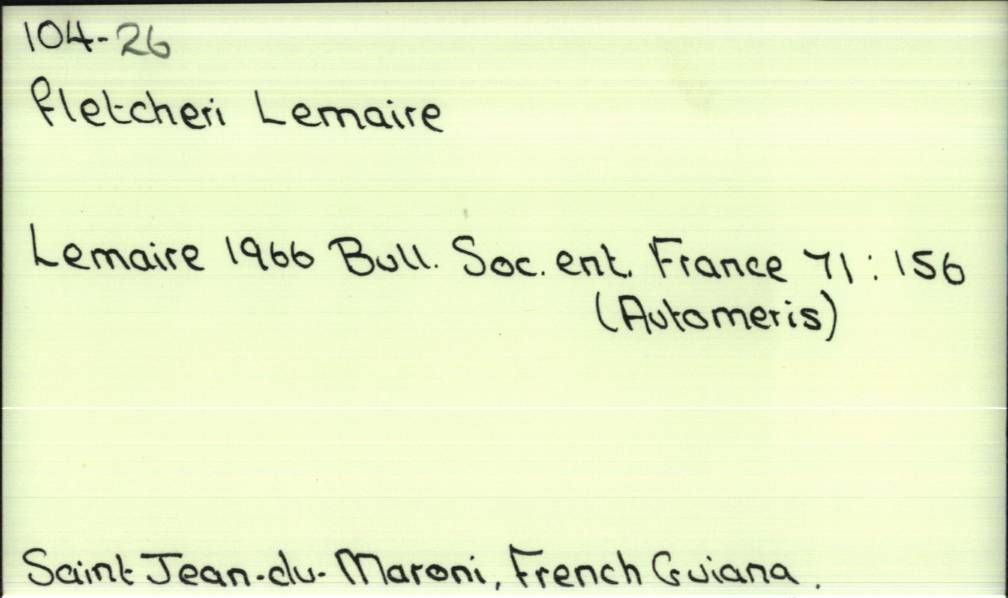 104-26
fletcheri Lemaire
Lemaire 1966 Bull. Soc. ent. France 71 : 156
(Automeris)
Saint Jean-du-Maroni, French Guiana.